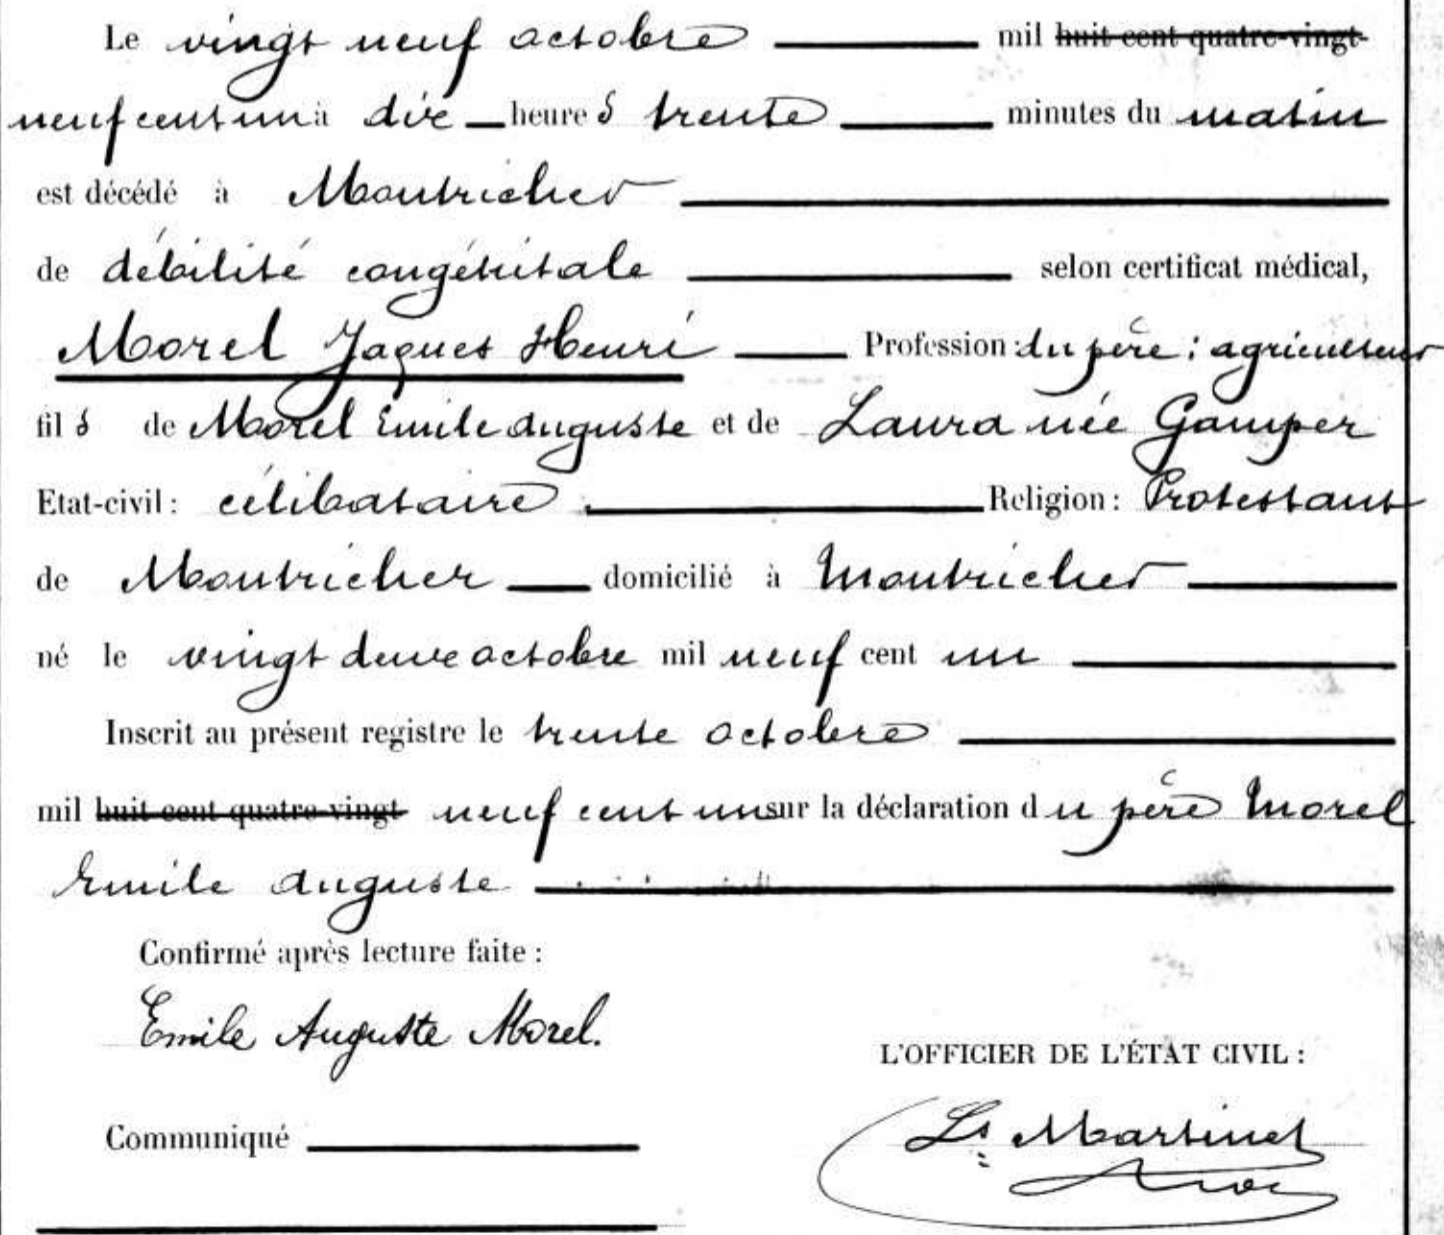 Le vingt neuf octobre mil huit cent quatre-vingt-
neuf cent un à dix heures trente minutes du matin
est décédé à Montricher
de débilité congénitale selon certificat médical,
Morel Jaques Henri Profession : du père : agriculteur
fils de Morel Emile Auguste et de Laura née Gamper
Etat-civil : célibataire Religion : Protestant
de Montricher domicilié à Montricher
né le vingt deux octobre mil neuf cent un
Inscrit au présent registre le trente octobre
mil huit cent quatre-vingt neuf cent un sur la déclaration du père Morel
Emile Auguste
Confirmé après lecture faite :
Emile Auguste Morel.
L'OFFICIER DE L'ÉTAT CIVIL :
Communiqué
Ls Martinet